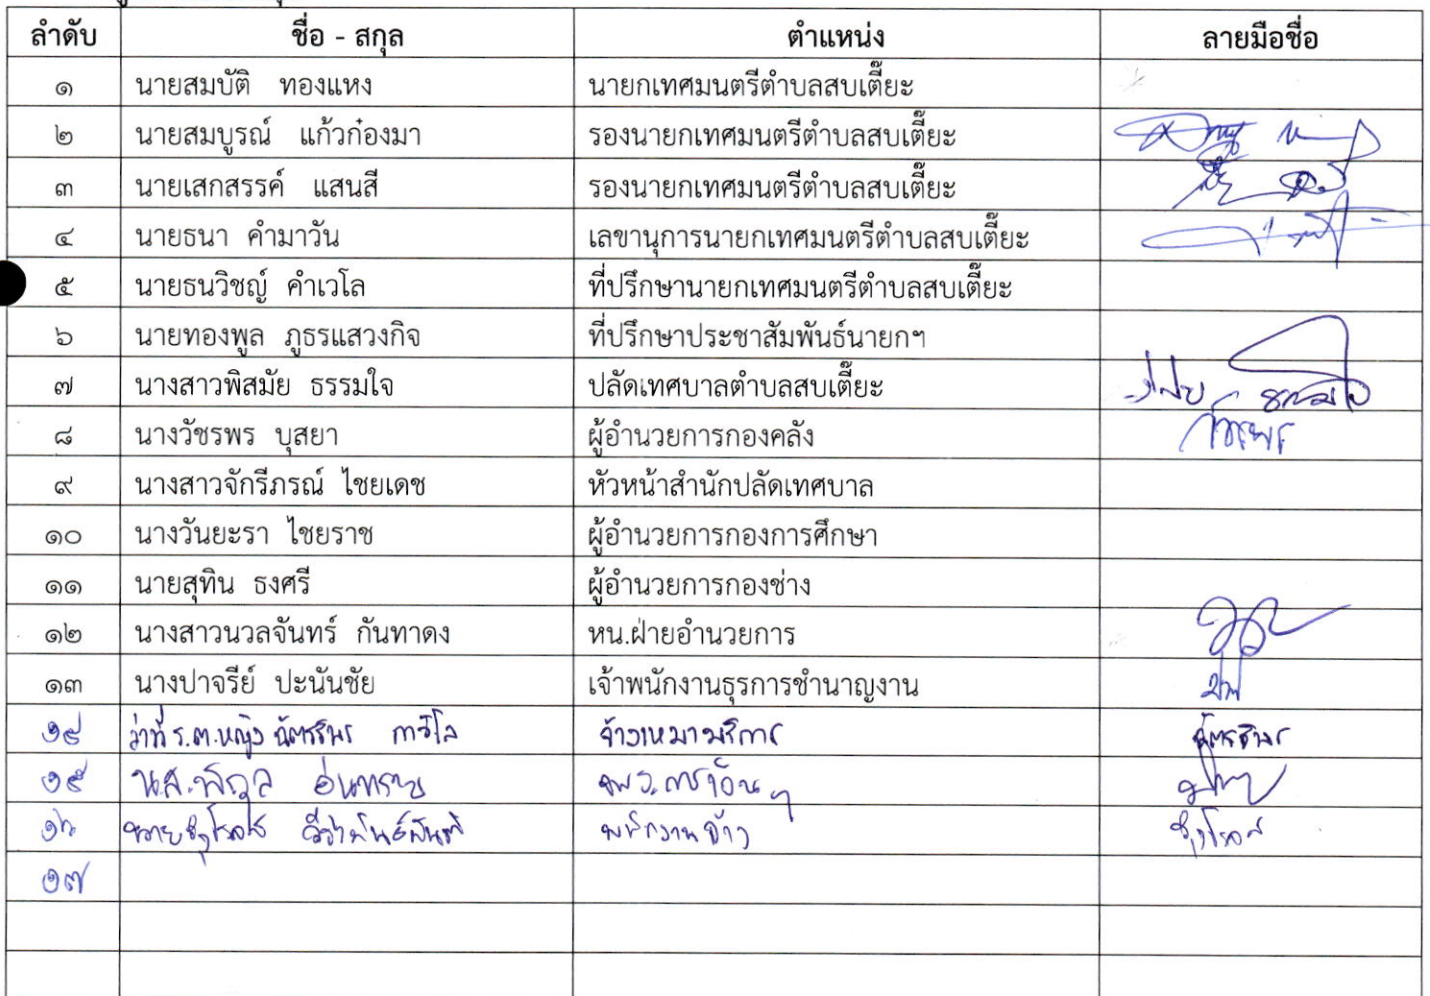 ลำดับ ชื่อ - สกุล ตำแหน่ง ลายมือชื่อ
๑ นายสมบัติ ทองแหง นายกเทศมนตรีตำบลสบเตี๊ยะ
๒ นายสมบูรณ์ แก้วก๋องมา รองนายกเทศมนตรีตำบลสบเตี๊ยะ
๓ นายเสกสรรค์ แสนสี รองนายกเทศมนตรีตำบลสบเตี๊ยะ
๔ นายธนา คำมาวัน เลขานุการนายกเทศมนตรีตำบลสบเตี๊ยะ
๕ นายธนวิชญ์ คำเวโล ที่ปรึกษานายกเทศมนตรีตำบลสบเตี๊ยะ
๖ นายทองพูล ภูธรแสวงกิจ ที่ปรึกษาประชาสัมพันธ์นายกฯ
๗ นางสาวพิสมัย ธรรมใจ ปลัดเทศบาลตำบลสบเตี๊ยะ
๘ นางวัชรพร บุสยา ผู้อำนวยการกองคลัง
๙ นางสาวจักรีภรณ์ ไชยเดช หัวหน้าสำนักปลัดเทศบาล
๑๐ นางวันยะรา ไชยราช ผู้อำนวยการกองการศึกษา
๑๑ นายสุทิน ธงศรี ผู้อำนวยการกองช่าง
๑๒ นางสาวนวลจันทร์ กันทาดง หน.ฝ่ายอำนวยการ
๑๓ นางปาจรีย์ ปะนันชัย เจ้าพนักงานธุรการชำนาญงาน
๑๔ ว่าที่ ร.ต.หญิง จ้างเหมาบริการ
๑๕ น.ส.
๑๖ พนักงานจ้าง
๑๗